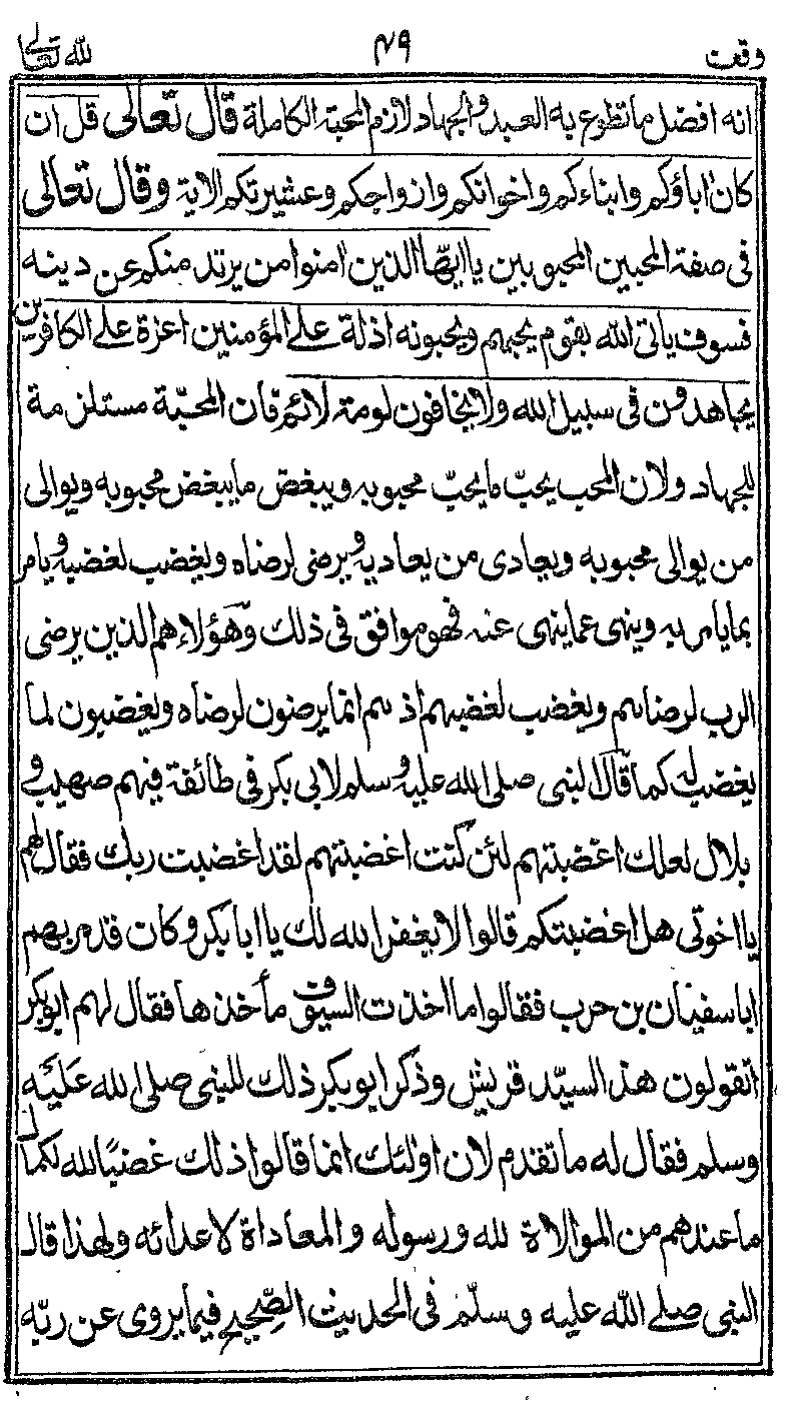 وقف ٤٩ لله تعالى
انه افضل ما تطوع به العبد والجهاد لازم المحبة الكاملة قال تعالى قل ان
كان اباؤكم وابناءكم واخوانكم وازواجكم وعشيرتكم الاية وقال تعالى
فى صفة المحبين المحبوبين يا ايها الذين امنوا من يرتد منكم عن دينه
فسوف ياتى الله بقوم يحبهم ويحبونه اذلة على المؤمنين اعزة على الكافرين
يجاهدون فى سبيل الله ولا يخافون لومة لائم فان المحبّة مستلزمة
للجهاد ولان المحب يحبّ ما يحبّ محبوبه ويبغض ما يبغض محبوبه ويوالى
من يوالى محبوبه ويعادى من يعاديه ويرضى لرضاه ويغضب لغضبه ويامر
بما يامر به وينهى عما ينهى عنه فهو موافق فى ذلك وهؤلاء هم الذين يرضى
الرب لرضاهم ويغضب لغضبهم اذ هم انما يرضون لرضاه ويغضبون لما
يغضب له كما قال النبى صلى الله عليه وسلم لابى بكر فى طائفة فيهم صهيب و
بلال لعلك اغضبتهم لئن كنت اغضبتهم لقد اغضبت ربك فقال لهم
يا اخوتى هل اغضبتكم قالوا لا يغفر الله لك يا ابا بكر وكان قد مر بهم
ابا سفيان بن حرب فقالوا ما اخذت السيوف مأخذها فقال لهم ابو بكر
اتقولون هذا لسيّد قريش وذكر ابو بكر ذلك للنبى صلى الله عليه
وسلم فقال له ما تقدم لان اولئك انما قالوا ذلك غضبًا لله لكمال
ما عندهم من الموالاة لله ورسوله والمعاداة لاعدائه ولهذا قال
النبى صلى الله عليه وسلّم فى الحديث الصّحيح فيما يروى عن ربّه